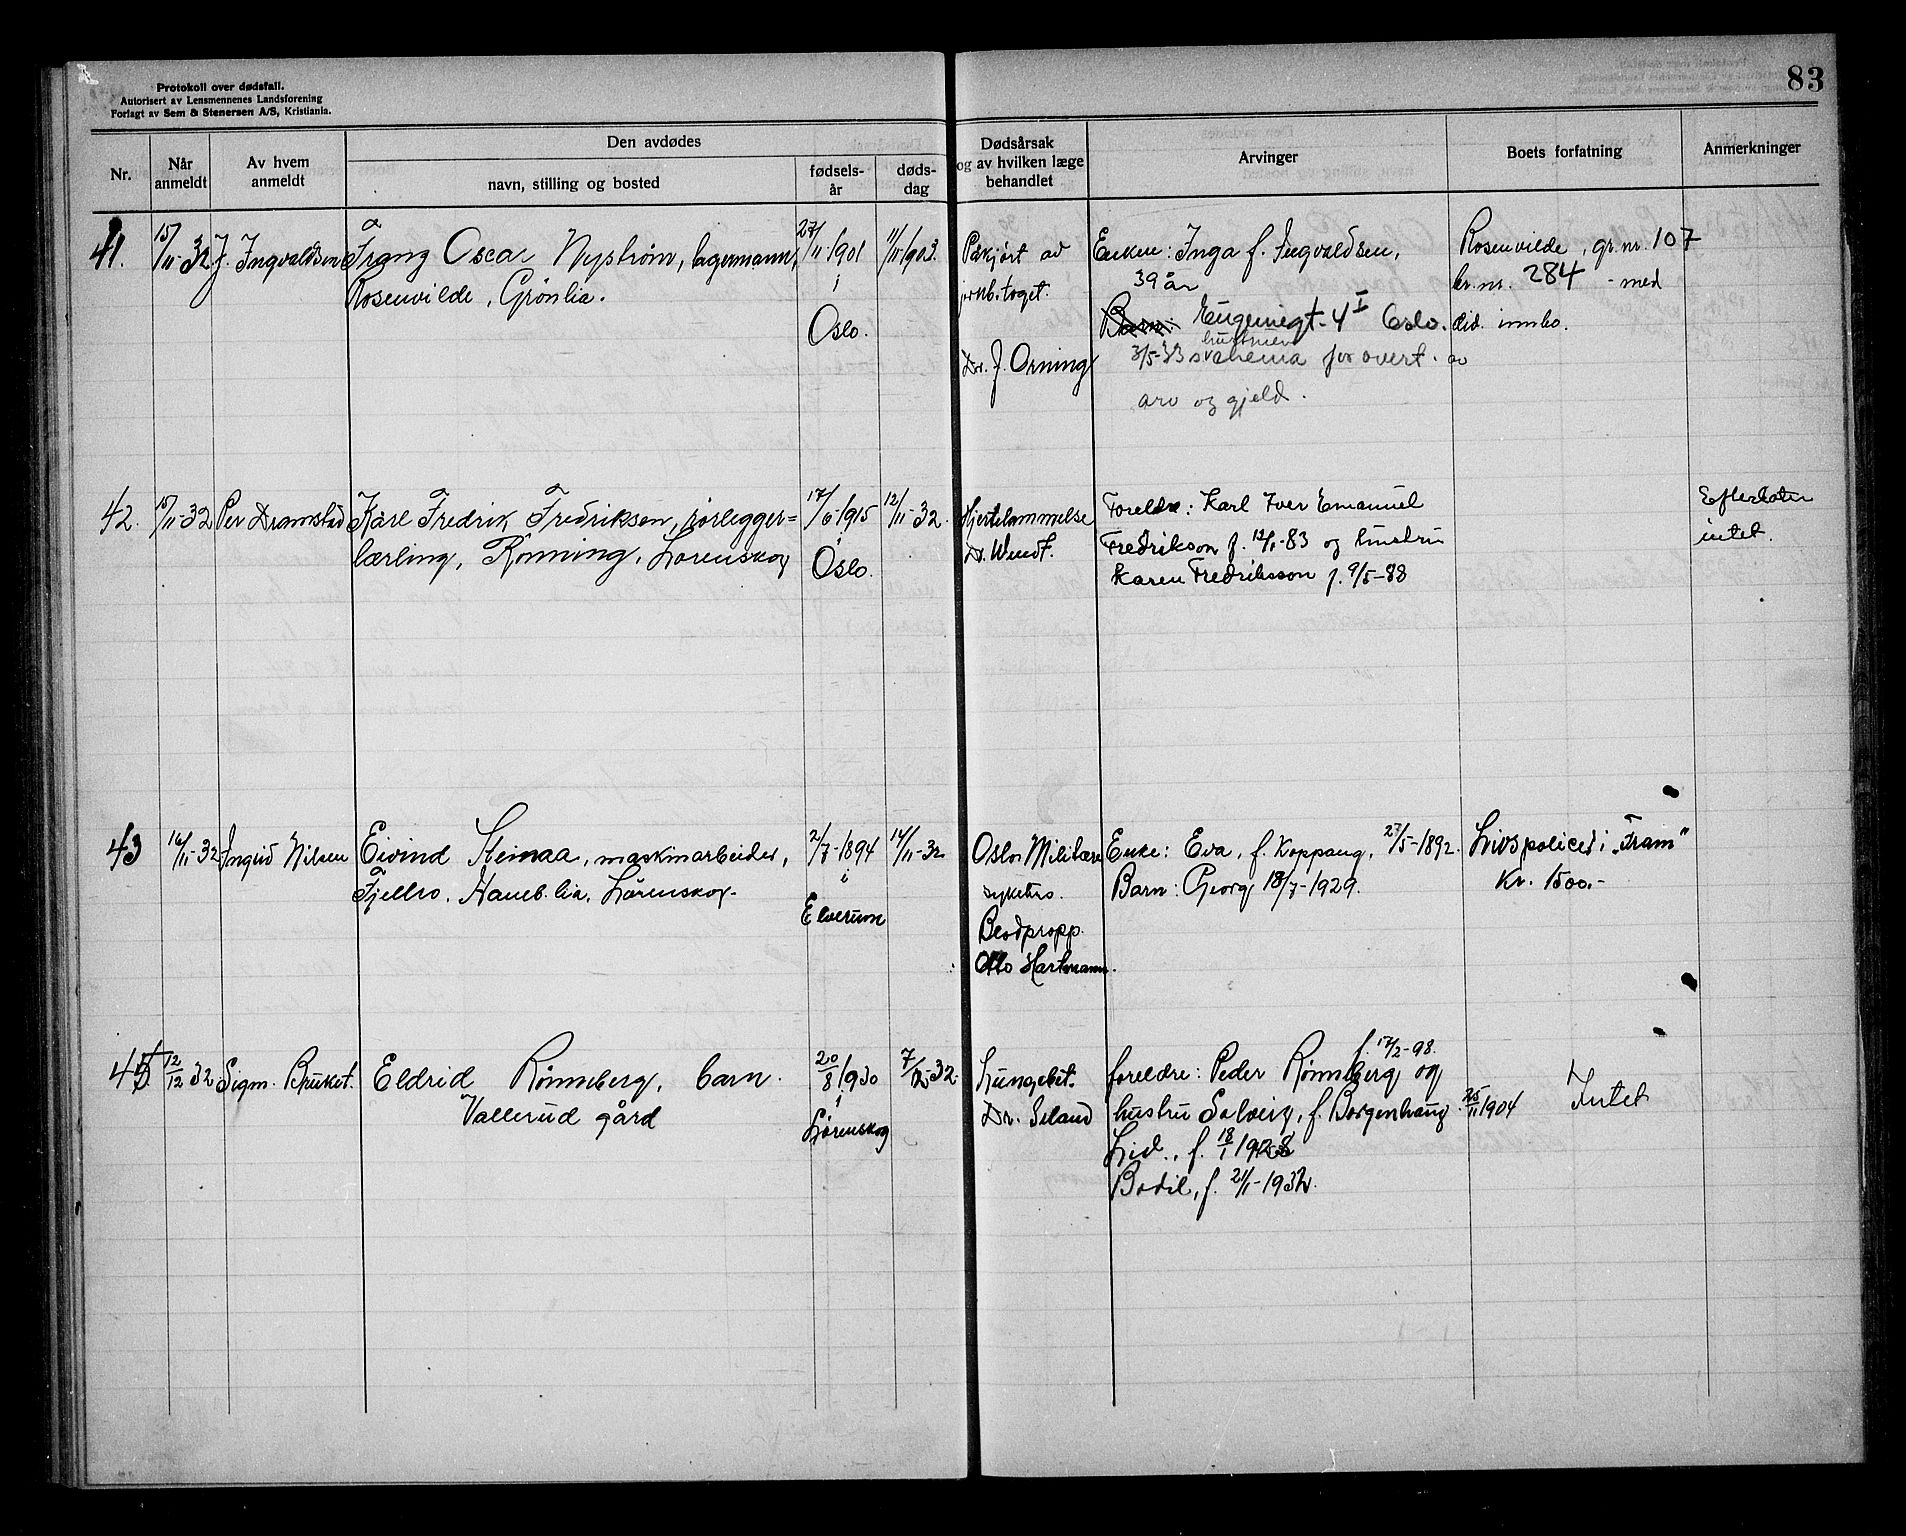 Protokoll over dødsfall.
Autorisert av Lensmennenes Landsforening
Forlagt av Sem & Stenersen A/S, Kristiania.
83
Nr.
Når anmeldt
Av hvem anmeldt
Den avdødes
navn, stilling og bosted
fødsels-år
døds-dag
Dødsårsak og av hvilken læge behandlet
Arvinger
Boets forfatning
Anmerkninger
41.
15/11-32
J. Ingvaldsen
Frang Oscar Nystrøm, lagermann,
Rosenvilde, Grønlia.
27/11-1901
i
Oslo.
11/11 1903.
Påkjørt av
jernb.toget.
Dr. J. Orning
Enken: Inga f. Ingvaldsen,
39 år
Barn: Eugeniegt-4 I Oslo.
3/5-33 schema for overt. av
arv og gjeld.
Rosenvilde, gr.nr. 107
br.nr. 284 - med
div. innbo.
42.
15/11-32
Per Dramstad
Karl Fredrik Fredriksen, rørlegger=
lærling, Rønning, Lørenskog
17/6-1915
Oslo.
12/11-32.
Hjertelammelse
Dr. Wendt.
Foreldre: Karl Iver Emanuel
Fredrikson f. 12/1-83 og hustru
Karen Fredriksson f. 9/5-88
Efterlater
intet.
43
16/11-32
Ingrid Nilsen
Eivind Steinaa, maskinarbeider,
Fjellro, Haneb.lia, Lørenskog-
2/7-1894
i
Elverum
14/11-32
Oslo Militære
sykehs.
Blodpropp.
Otto Hartmann.
Enke: Eva, f. Koppang, 27/5-1892.
Barn: Georg 18/7-1929.
Livspolice i "Fram"
Kr. 1500.-
45
12/12 32
Sigm. Bruket.
Eldrid Rønneberg, barn.
Vallerud gård
20/8 1930
i
Lørenskog
7/12-32
Lungebet.
Dr. Seland
f. 17/2-98.
foreldre: Peder Rønneberg og
hustru Solveig, f. Borgenhaug 25/11 1904
Liv., f. 18/1 1928
Bodil, f. 21/1-1932.
Intet